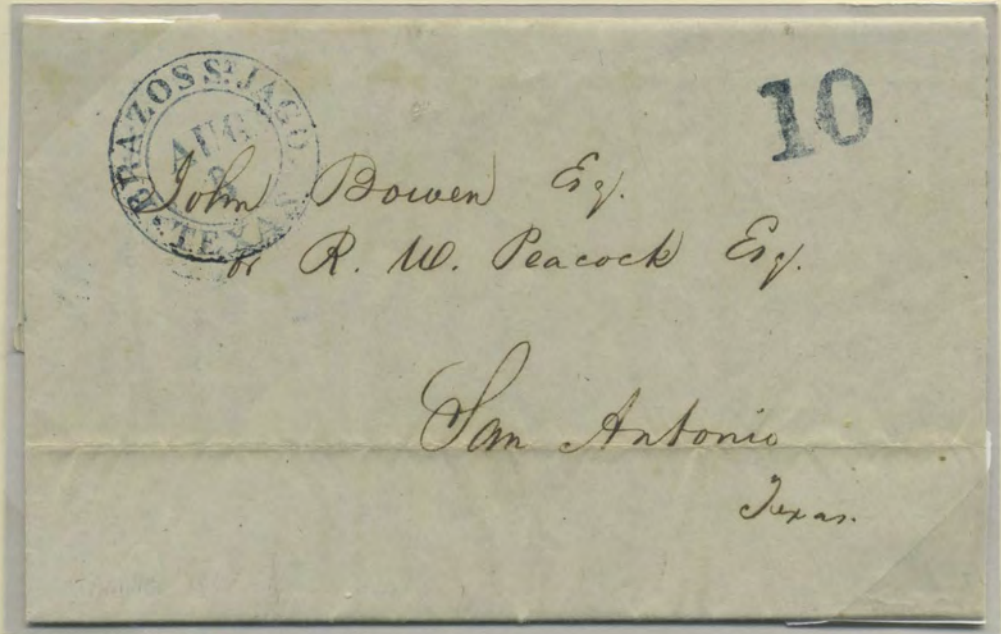 BRAZOS St. JAGO.
AUG
TEXAS
10
John Bowen Esq.
or R. W. Peacock Esq.
San Antonio
Texas.